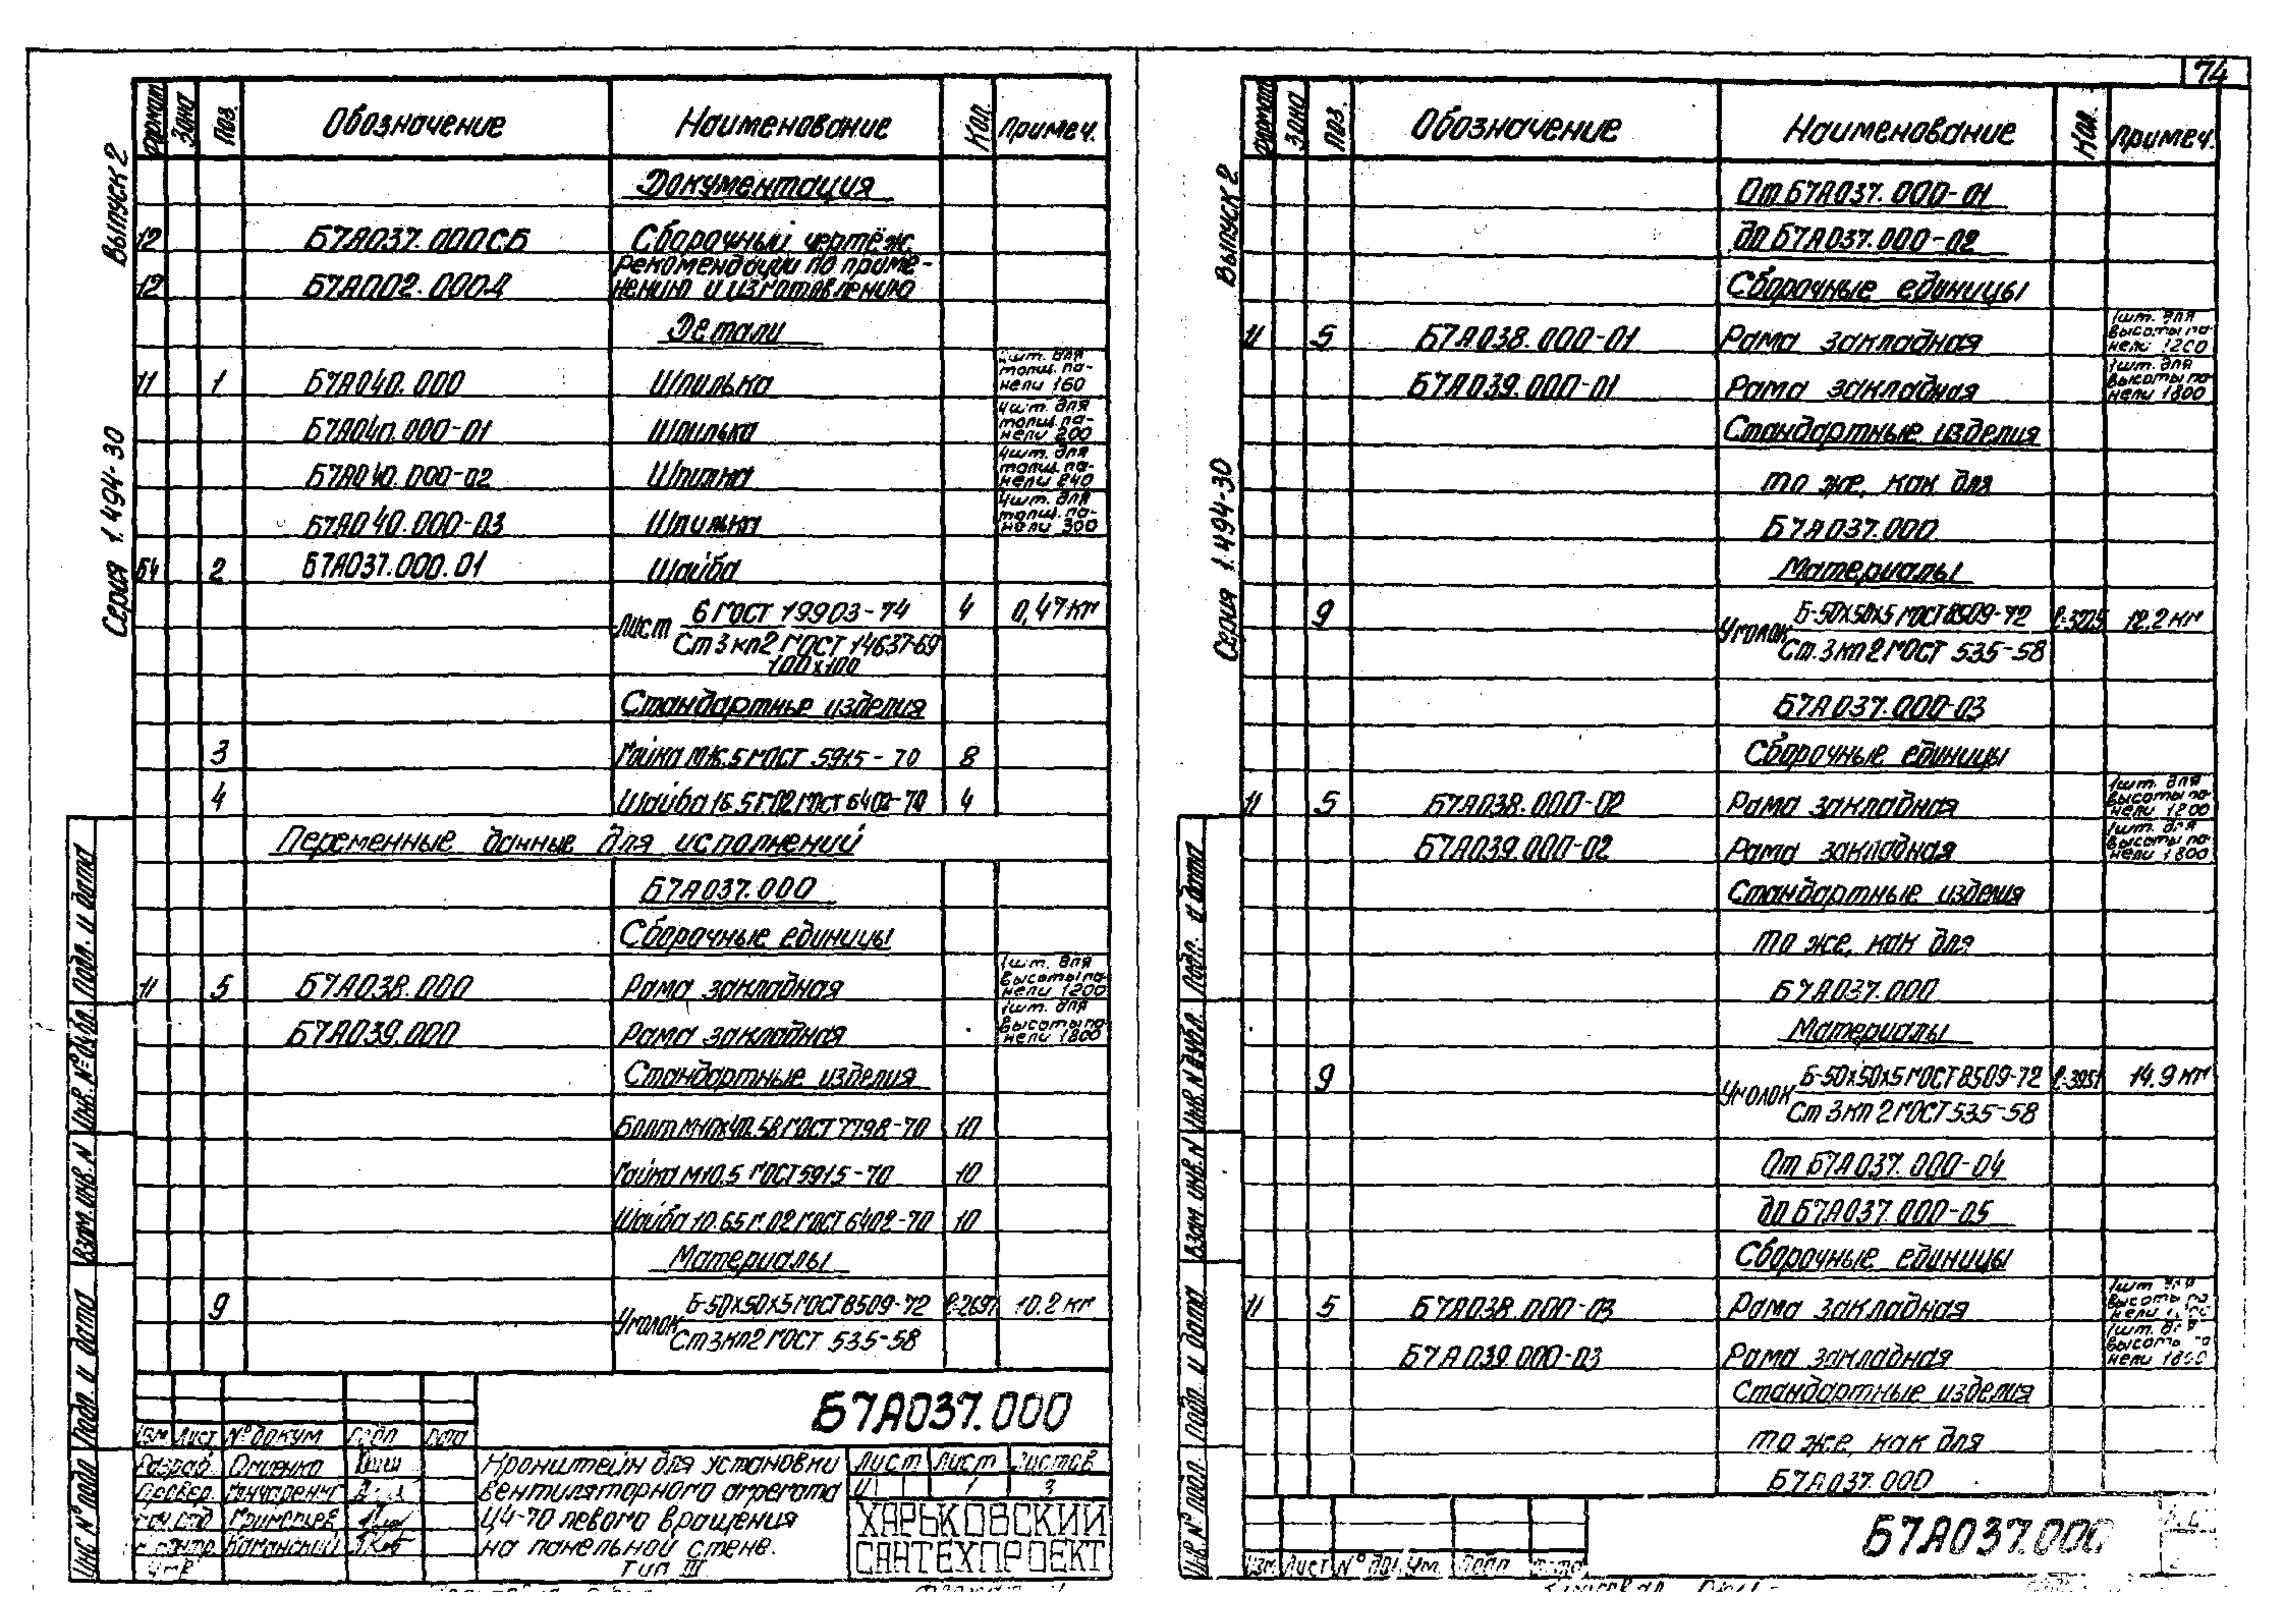 74
Выпуск 2
Серия 1.494-30
Формат Зона Поз. Обозначение Наименование Кол. Примеч.
Документация
12 Б7А037.000СБ Сборочный чертёж
12 Б7А002.000Д Рекомендации по приме-
нению и изготовлению
Детали
11 1 Б7А040.000 Шпилька 4шт. для
толщ. па-
нели 160
Б7А040.000-01 Шпилька 4шт. для
толщ. па-
нели 200
Б7А040.000-02 Шпилька 4шт. для
толщ. па-
нели 240
Б7А040.000-03 Шпилька 4шт. для
толщ. па-
нели 300
Б4 2 Б7А037.000.01 Шайба
Лист 6 ГОСТ 19903-74 4 0,47кг
Ст 3 кп2 ГОСТ 14637-69
100х100
Стандартные изделия
3 Гайка М16.5 ГОСТ 5915-70 8
4 Шайба 16.65Г.02 ГОСТ 6402-70 4
Переменные данные для исполнений
Б7А037.000
Сборочные единицы
11 5 Б7А038.000 Рама закладная 1шт. для
высоты па-
нели 1200
Б7А039.000 Рама закладная 1шт. для
высоты па-
нели 1800
Стандартные изделия
Болт М10х40.58 ГОСТ 7798-70 10
Гайка М10.5 ГОСТ 5915-70 10
Шайба 10.65г.02 ГОСТ 6402-70 10
Материалы
9 Уголок Б-50х50х5 ГОСТ 8509-72 ℓ-2697 10.2 кг
Ст 3 кп2 ГОСТ 535-58
Б7А037.000
Изм Лист № докум Подп Дата
Разраб.
Провер. Гончаренко
Кронштейн для установки
вентиляторного агрегата
Ц4-70 левого вращения
на панельной стене.
Тип III
Лист Лист Листов
И 1 3
ХАРЬКОВСКИЙ
САНТЕХПРОЕКТ
Инв № подл Подп. и дата Взам. инв. № Инв. № дубл. Подп. и дата
Выпуск 2
Серия 1.494-30
Формат Зона Поз. Обозначение Наименование Кол. Примеч.
От Б7А037.000-01
до Б7А037.000-02
Сборочные единицы
11 5 Б7А038.000-01 Рама закладная 1шт. для
высоты па-
нели 1200
Б7А039.000-01 Рама закладная 1шт. для
высоты па-
нели 1800
Стандартные изделия
то же, как для
Б7А037.000
Материалы
9 Уголок Б-50х50х5 ГОСТ 8509-72 ℓ-3225 12.2 кг
Ст.3 кп2 ГОСТ 535-58
Б7А037.000-03
Сборочные единицы
11 5 Б7А038.000-02 Рама закладная 1шт. для
высоты па-
нели 1200
Б7А039.000-02 Рама закладная 1шт. для
высоты па-
нели 1800
Стандартные изделия
то же, как для
Б7А037.000
Материалы
9 Уголок Б-50х50х5 ГОСТ 8509-72 ℓ-3951 14.9 кг
Ст 3 кп2 ГОСТ 535-58
От Б7А037.000-04
до Б7А037.000-05
Сборочные единицы
11 5 Б7А038.000-03 Рама закладная 1шт для
высоты па
нели
Б7А039.000-03 Рама закладная 1шт. для
высоты па
нели 1800
Стандартные изделия
то же, как для
Б7А037.000
Б7А037.000
Изм Лист № док.Ум. Подп Дата
Инв. № подл. Подп. и дата Взам. инв. № Инв. № дубл. Подп. и дата